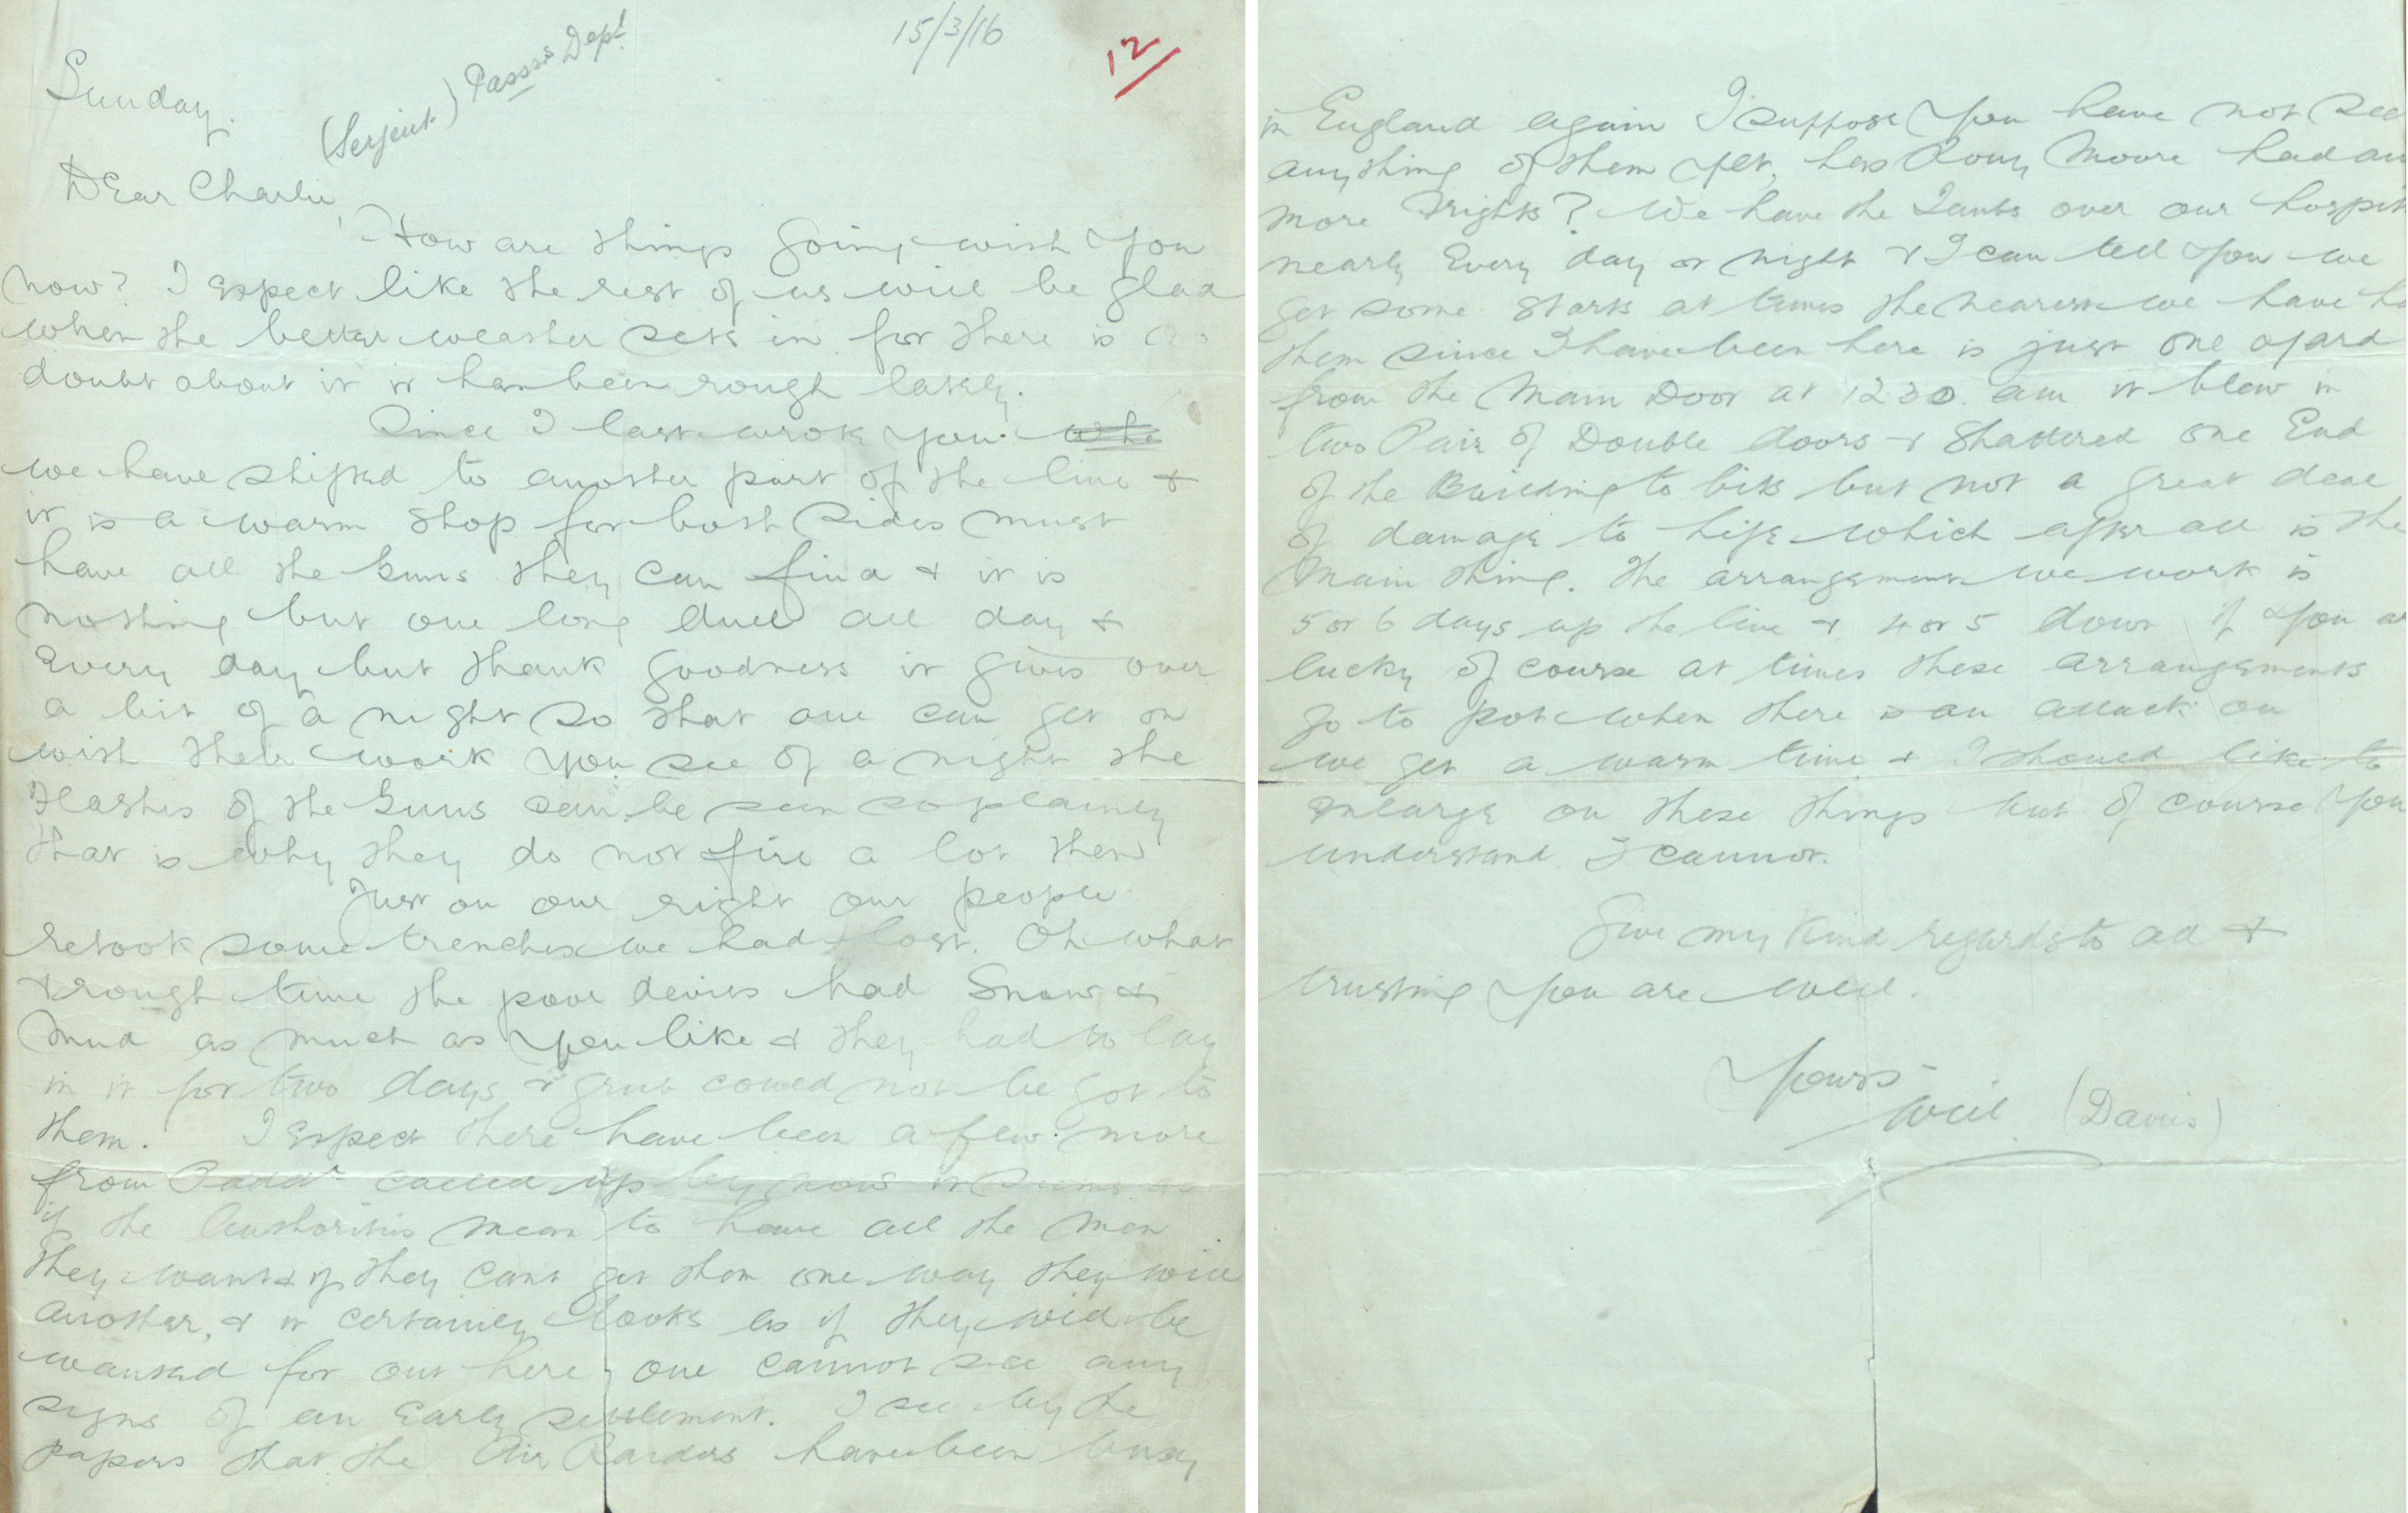 15/3/16
12
Sunday.
(Serjeut.) Passrs Dept.
Dear Charlie,
How are things going with you
now? I expect like the rest of us will be glad
when the better weather sets in for there is no
doubt about it it has been rough lately.
Since I last wrote you whe
we have shifted to another part of the line &
it is a warm shop for both sides must
have all the guns they can find & it is
nothing but one long duel all day &
every day but thank goodness it gives over
a bit of a night so that one can get on
with their work you see of a night the
flashes of the guns can be seen so plainly
that is why they do not fire a lot then
Just on our right our people
retook some trenches we had lost. Oh what
a rough time the poor devils had Snow &
mud as much as you like & they had to lay
in it for two days & grub could not be got to
them. I expect there have been a few more
from Paddn called up by now it seems as
if the Authorities mean to have all the men
they want & if they cant get them one way they will
another, & it certainly looks as if they will be
wanted for out here one cannot see any
signs of an early settlement. I see by the
papers that the Air Raiders have been busy
in England again I suppose you have not see
anything of them yet, has Moore had an
more frights? We have the Taubs over our hospit
nearly every day or night & I can tell you we
get some starts at times the nearest we have ha
them since I have been here is just one yard
from the Main Door at 12.30. am it blew in
two Pair of Double doors & shattered one End
of the Building to bits but not a great deal
of damage to life which after all is the
main thing. The arrangement we work is
5 or 6 days up the line & 4 or 5 down if you ar
lucky of course at times these arrangements
go to pot when there is an attack on
we get a warm time & I should like to
enlarge on these things but of course you
understand I cannot.
Give my kind regards to all &
trusting you are well.
Yours
Will (Davis)